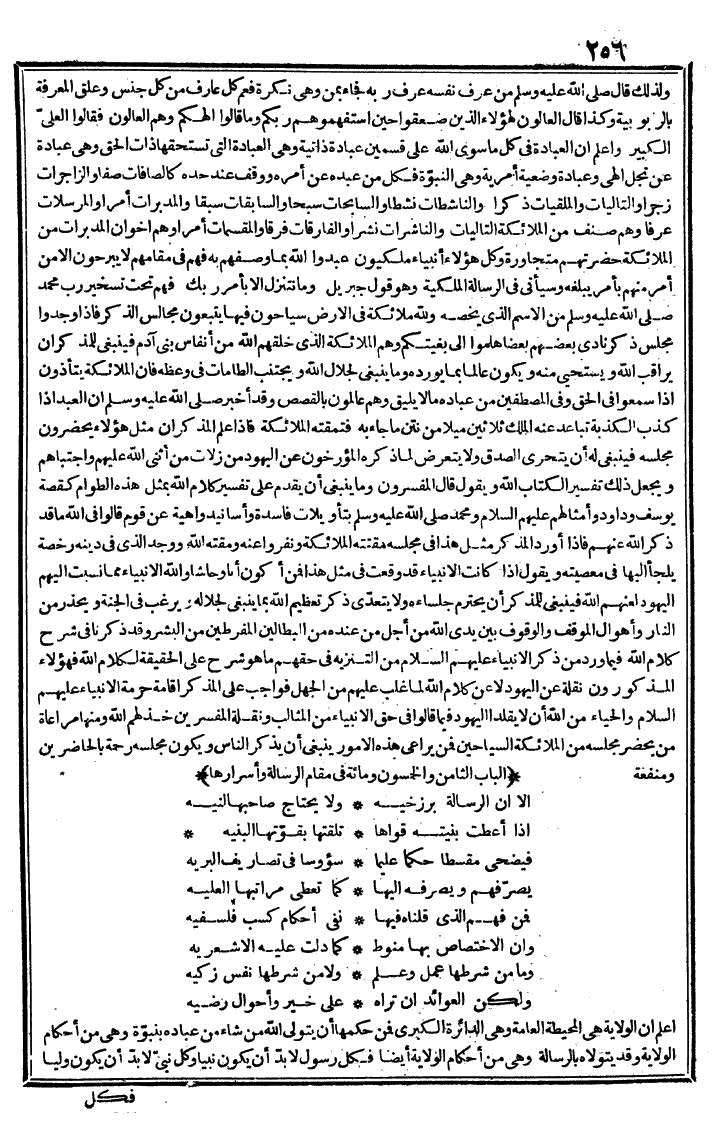 ٢٥٦
ولذلك قال صلى الله عليه وسلم من عرف نفسه عرف ربه فجاء بمن وهى نكرة فعم كل عارف من كل جنس وعلق المعرفة
بالربوبية وكذا قال العالون لهؤلاء الذين ضعقوا حين استفهموهم ربكم وما قالوا الهكم وهم العالون فقالوا العلىّ
الكبير واعلم ان العبادة فى كل ما سوى الله على قسمين عبادة ذاتية وهى العبادة التى تستحقها ذات الحق وهى عبادة
عن تجل الهى وعبادة وضعية أمرية وهى النبوّة فكل من عبده عن أمره ووقف عند حده كالصافات صفا والزاجرات
زجرا والتاليات والملقيات ذكرا والناشطات نشطا والسابحات سبحا والسابقات سبقا والمدبرات أمرا والمرسلات
عرفا وهم صنف من الملائكة التاليات والناشرات نشرا والفارقات فرقا والمقسمات أمرا وهم اخوان المدبرات من
الملائكة حضرتهم متجاورة وكل هؤلاء أنبياء ملكيون عبدوا الله بما وصفهم به فهم فى مقامهم لا يبرحون الا من
أمر منهم بأمر يبلغه وسيأتى فى الرسالة الملكية وهو قول جبريل وما نتنزل الا بأمر ربك فهم تحت تسخير رب محمد
صلى الله عليه وسلم من الاسم الذى يخصه ولله ملائكة فى الارض سياحون فيها يتبعون مجالس الذكر فاذا وجدوا
مجلس ذكر نادى بعضهم بعضا هلموا الى بغيتكم وهم الملائكة الذى خلقهم الله من أنفاس بنى آدم فينبغى للمذكر ان
يراقب الله ويستحيى منه ويكون عالما بما يورده وما ينبغى لجلال الله ويجتنب الطامات فى وعظه فان الملائكة يتأذون
اذا سمعوا فى الحق وفى المصطفين من عباده ما لا يليق وهم عالمون بالقصص وقد أخبر صلى الله عليه وسلم ان العبد اذا
كذب الكذبة تباعد عنه الملك ثلاثين ميلا من نتن ما جاء به فتمقته الملائكة فاذا علم المذكر ان مثل هؤلاء يحضرون
مجلسه فينبغى له أن يتحرى الصدق ولا يتعرض لما ذكره المؤرخون عن اليهود من زلات من أثنى الله عليهم واجتباهم
ويجعل ذلك تفسير الكتاب الله ويقول قال المفسرون وما ينبغى أن يقدم على تفسير كلام الله بمثل هذه الطوام كقصة
يوسف وداود وأمثالهم عليهم السلام ومحمد صلى الله عليه وسلم بتأويلات فاسدة وأسانيد واهية عن قوم قالوا فى الله ما قد
ذكر الله عنهم فاذا أورد المذكر مثل هذا فى مجلسه مقتته الملائكة ونفروا عنه ومقته الله ووجد الذى فى دينه رخصة
يلجأ اليها فى معصيته ويقول اذا كانت الانبياء قد وقعت فى مثل هذا فمن أكون أنا وحاشا والله الانبياء مما نسبت اليهم
اليهود لعنهم الله فينبغى للمذكر أن يحترم جلساءه ولا يتعدّى ذكر تعظيم الله بما ينبغى لجلاله ويرغب فى الجنة ويحذر من
النار وأهوال الموقف والوقوف بين يدى الله من أجل من عنده من البطالين المفرطين من البشر وقد ذكرنا فى شرح
كلام الله فيما ورد من ذكر الانبياء عليهم السلام من التنزيه فى حقهم ما هو شرح على الحقيقة لكلام الله فهؤلاء
المذكورون نقلة عن اليهود لا عن كلام الله لما غلب عليهم من الجهل فواجب على المذكر اقامة حرمة الانبياء عليهم
السلام والحياء من الله أن لا يقلد اليهود فيما قالوا فى حق الانبياء من المثالب ونقلة المفسرين خذلهم الله ومنها مراعاة
من يحضر مجلسه من الملائكة السياحين فمن يراعى هذه الامور ينبغى أن يذكر الناس ويكون مجلسه رحمة بالحاضرين
ومنفعة ﴿الباب الثامن والخمسون ومائة فى مقام الرسالة وأسرارها﴾
الا ان الرسالة برزخيه * ولا يحتاج صاحبها لنيه
اذا أعطت بنيته قواها * تلقتها بقوّتها البنيه *
فيضحى مقسطا حكما عليما * سؤوسا فى تصاريف البريه
يصرّفهم ويصرفه اليها * كما تعطى مراتبها العليه
فمن فهم الذى قلناه فيها * نفى أحكام كسب فلسفيه
وان الاختصاص بها منوط * كما دلت عليه الاشعريه
وما من شرطها عمل وعلم * ولا من شرطها نفس زكيه
ولكن العوائد ان تراه * على خير وأحوال رضيه
اعلم ان الولاية هى المحيطة العامة وهى الدائرة الكبرى فمن حكمها أن يتولى الله من شاء من عباده بنبوّة وهى من أحكام
الولاية وقد يتولاه بالرسالة وهى من أحكام الولاية أيضا فكل رسول لا بدّ أن يكون نبيا وكل نبىّ لا بدّ أن يكون وليا
فكل